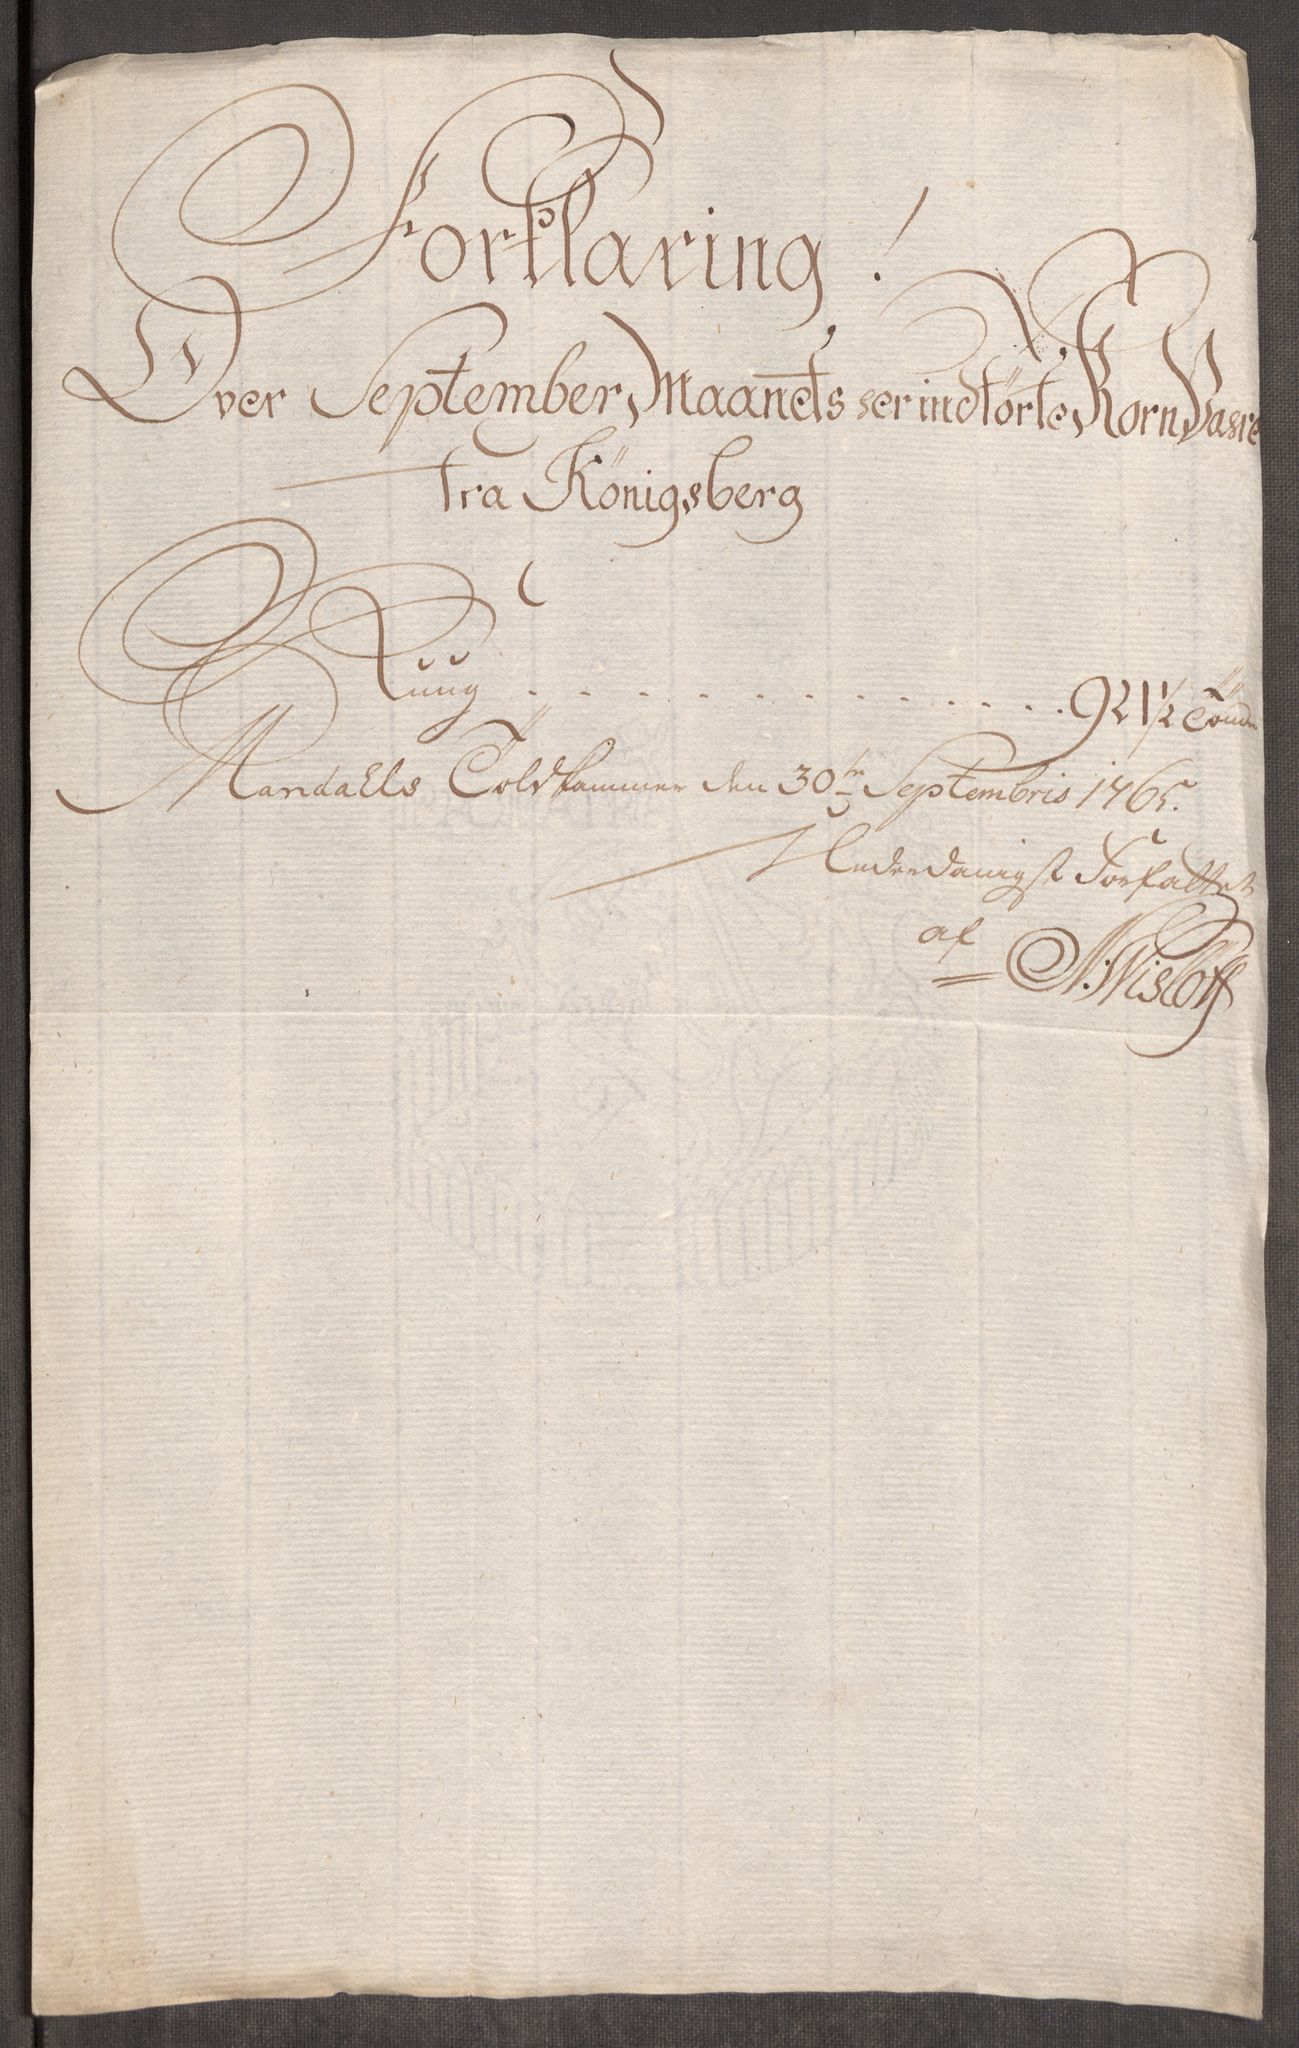 Forklaring!
Over September Maanets her indförte Korn Vahre
fra Königsberg
Ruug . . . . . . . . . . . . . 921 1/2 Tönder
Mandahls Toldkammer den 30te Septembris 1765.
Underdanigst Forfattet
af N: Wislöff